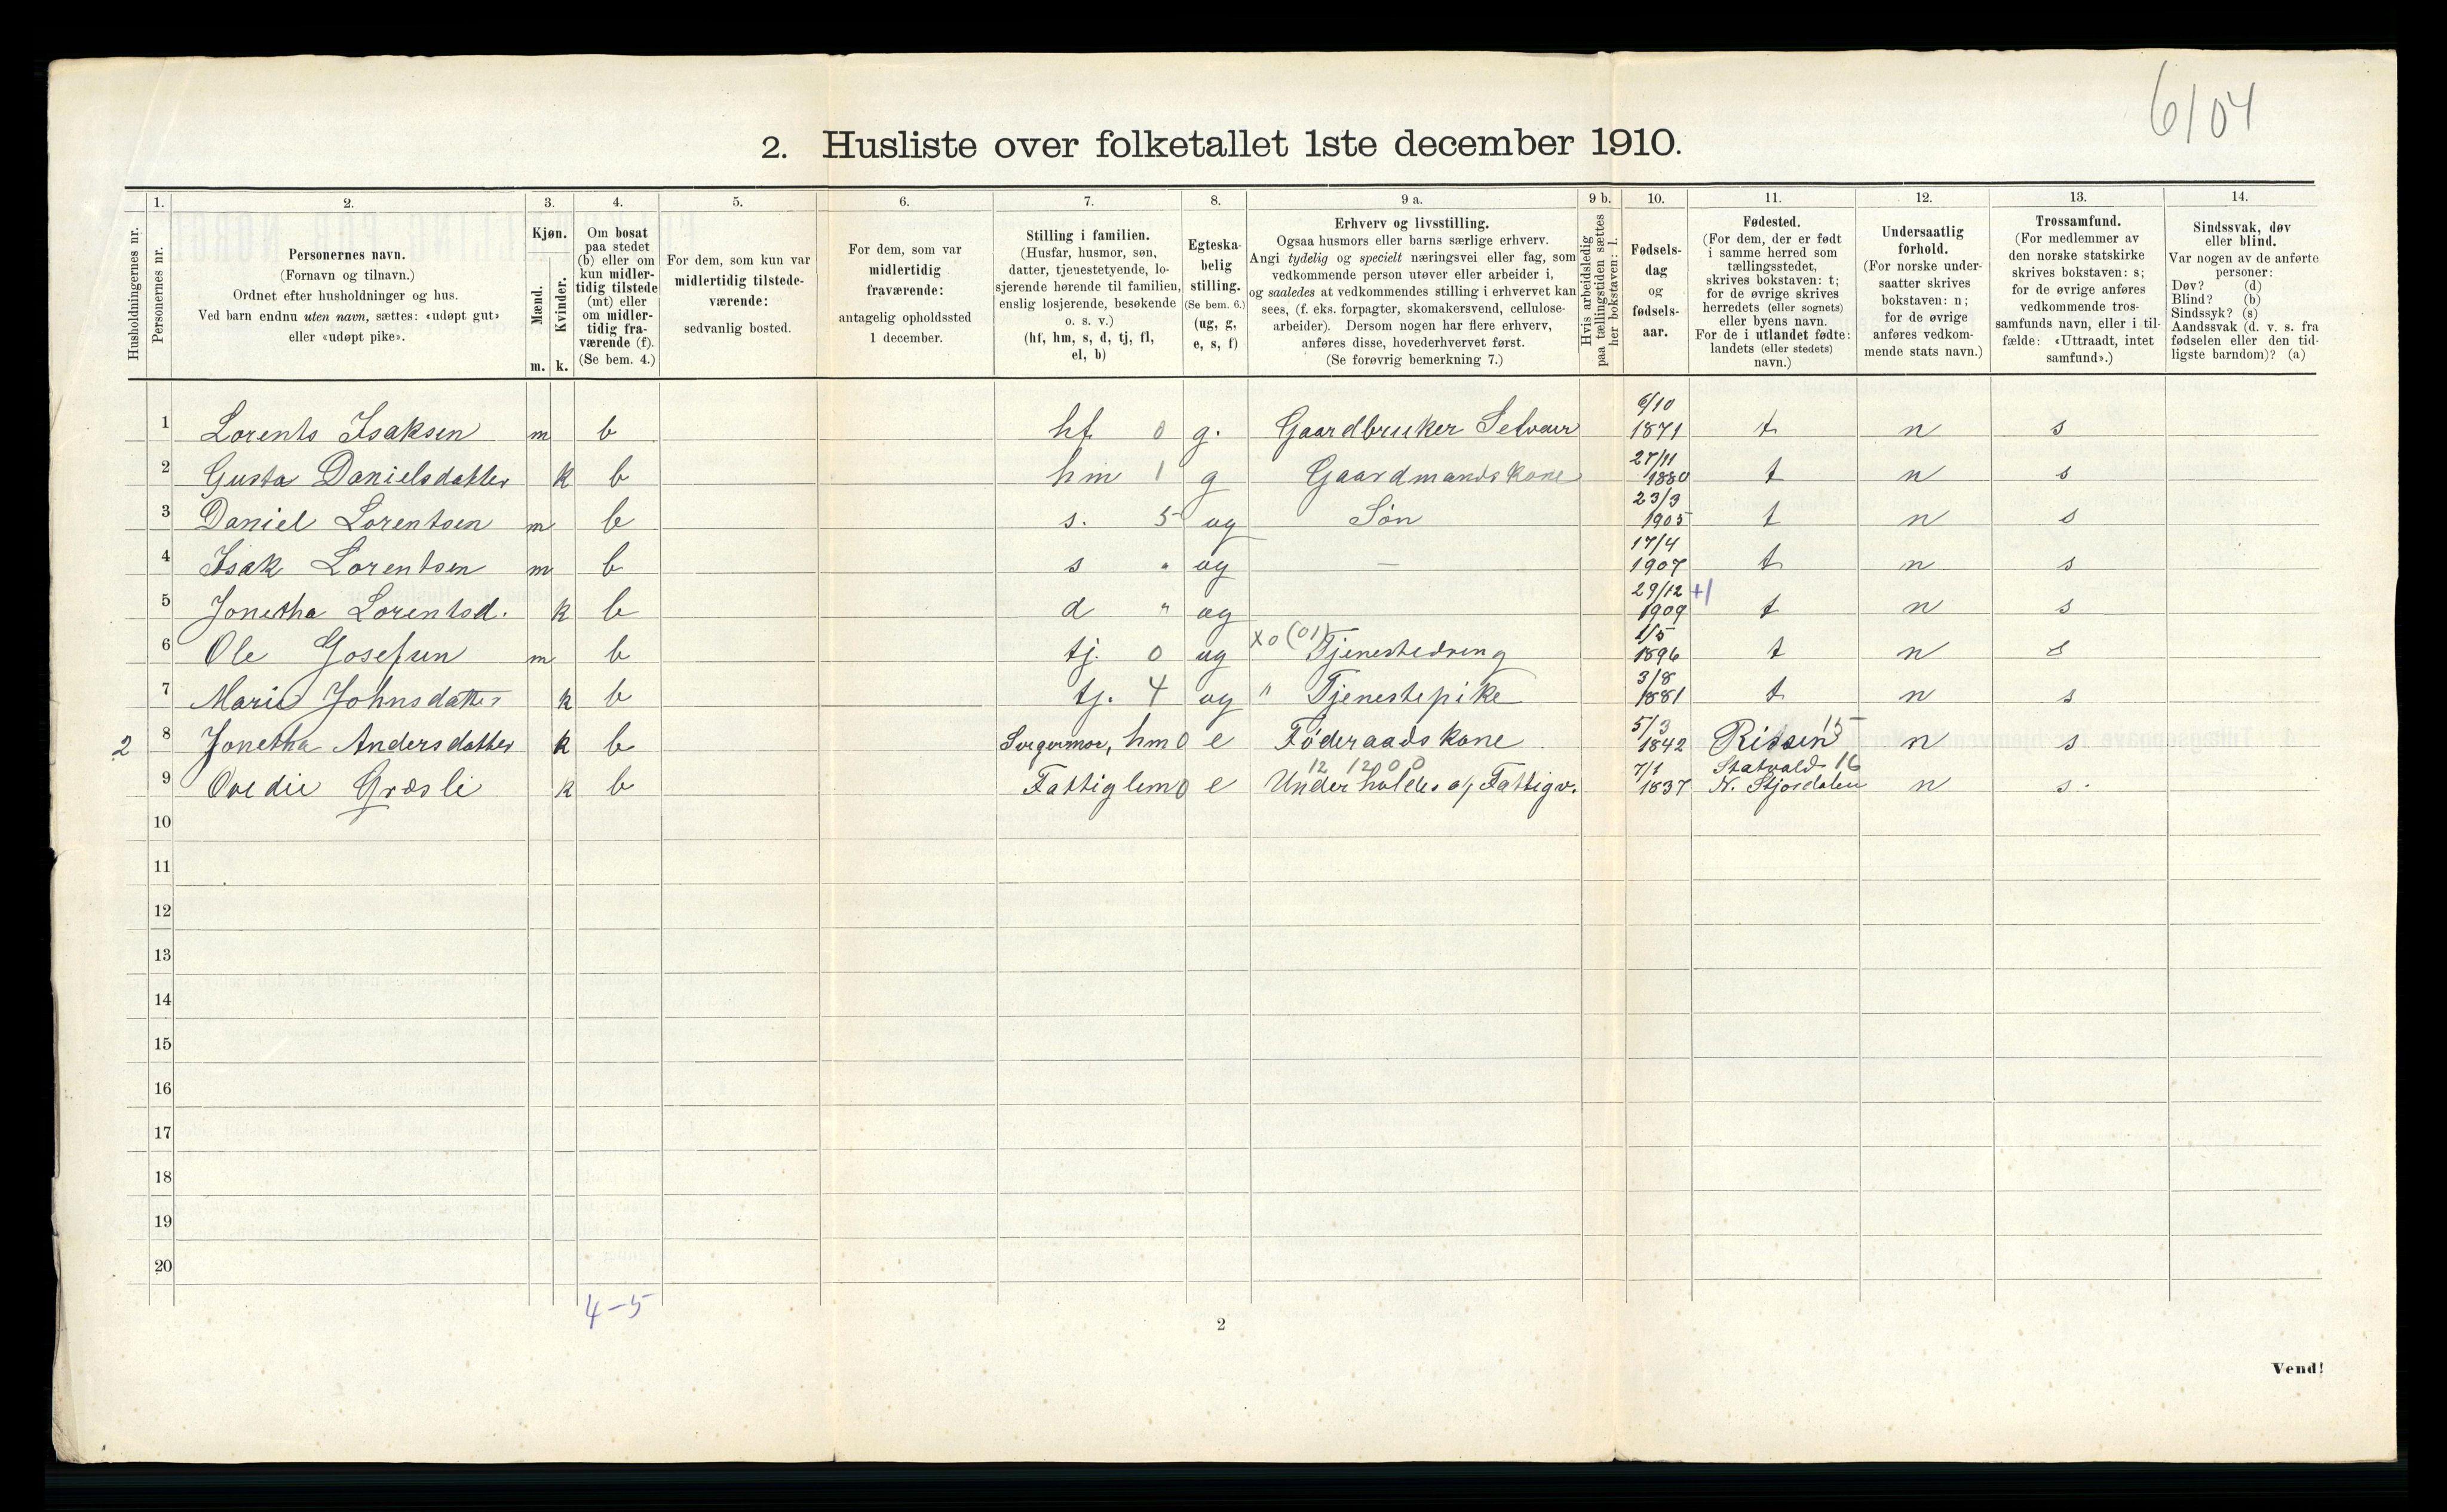 6/04
2. Husliste over folketallet 1ste december 1910.
Husholdningernes nr.
1. Personernes nr.
2. Personernes navn.
(Fornavn og tilnavn.)
Ordnet efter husholdninger og hus.
Ved barn endnu uten navn, sættes: «udøpt gut»
eller «udøpt pike».
3. Kjøn.
Mænd. m.
Kvinder. k.
4. Om bosat
paa stedet
(b) eller om
kun midler-
tidig tilstede
(mt) eller
om midler-
tidig fra-
værende (f).
(Se bem. 4.)
5. For dem, som kun var
midlertidig tilstede-
værende:
sedvanlig bosted.
6. For dem, som var
midlertidig
fraværende:
antagelig opholdssted
1 december.
7. Stilling i familien.
(Husfar, husmor, søn,
datter, tjenestetyende, lo-
sjerende hørende til familien,
enslig losjerende, besøkende
o. s. v.)
(hf, hm, s, d, tj, fl,
el, b)
8. Egteska-
belig
stilling.
(Se bem. 6.)
(ug, g,
e, s, f)
9 a. Erhverv og livsstilling.
Ogsaa husmors eller barns særlige erhverv.
Angi tydelig og specielt næringsvei eller fag, som
vedkommende person utøver eller arbeider i,
og saaledes at vedkommendes stilling i erhvervet kan
sees, (f. eks. forpagter, skomakersvend, cellulose-
arbeider). Dersom nogen har flere erhverv,
anføres disse, hovederhvervet først.
(Se forøvrig bemerkning 7.)
9 b. Hvis arbeidsledig
paa tællingstiden sættes
her bokstaven: l.
10. Fødsels-
dag
og
fødsels-
aar.
11. Fødested.
(For dem, der er født
i samme herred som
tællingsstedet,
skrives bokstaven: t;
for de øvrige skrives
herredets (eller sognets)
eller byens navn.
For de i utlandet fødte:
landets (eller stedets)
navn.)
12. Undersaatlig
forhold.
(For norske under-
saatter skrives
bokstaven: n;
for de øvrige
anføres vedkom-
mende stats navn.)
13. Trossamfund.
(For medlemmer av
den norske statskirke
skrives bokstaven: s;
for de øvrige anføres
vedkommende tros-
samfunds navn, eller i til-
fælde: «Uttraadt, intet
samfund».)
14. Sindssvak, døv
eller blind.
Var nogen av de anførte
personer:
Døv? (d)
Blind? (b)
Sindssyk? (s)
Aandssvak (d. v. s. fra
fødselen eller den tid-
ligste barndom)? (a)
1 Lorents Isaksen m b hf. 0 g. Gaardbruker Selveier 6/10 1871 t n s
2 Gusta Danielsdatter k b hm 1 g Gaardmandskone 27/11 1880 t n s
3 Daniel Lorentsen m b s. 5 ug Søn 23/3 1905 t n s
4 Isak Lorentsen m b s " ug — 17/4 1907 t n s
5 Jonetha Lorentsd. k b d " ug 29/12 1909 +1 t n s
6 Ole Josefsen m b tj. 0 ug x0 (01) Tjenestedreng 1/5 1896 t n s
7 Marie Johnsdatter k b tj. 4 ug " Tjenestepike 3/8 1881 t n s
2 8 Jonetha Andersdatter k b Svigermor, hm 0 e Føderaadskone 5/3 1842 Rissen 15 n s
9 Ovedie Græsli k b Fattiglem 0 e 12 1200 Underholdes af Fattigv. 7/1 1837 Skatvold 16 N. Stjørdalen n s.
10
11
12
13
14
15
16
17
18
19
20
4-5
2
Vend!